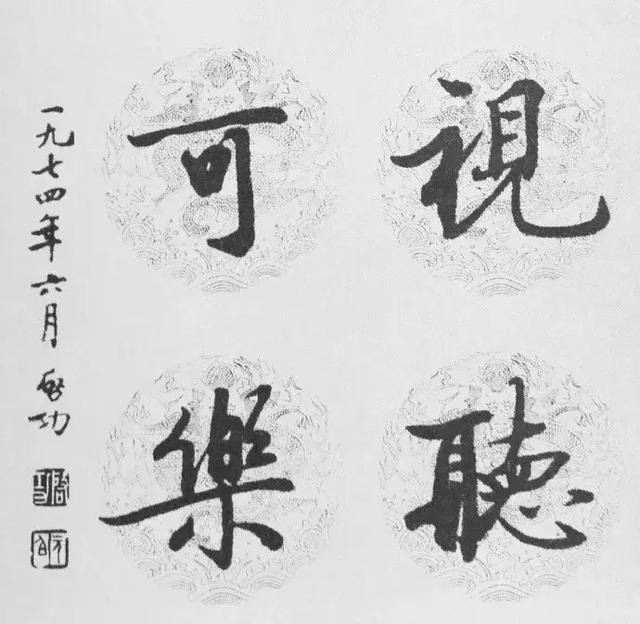 視聽
可樂
一九七四年六月 啟功